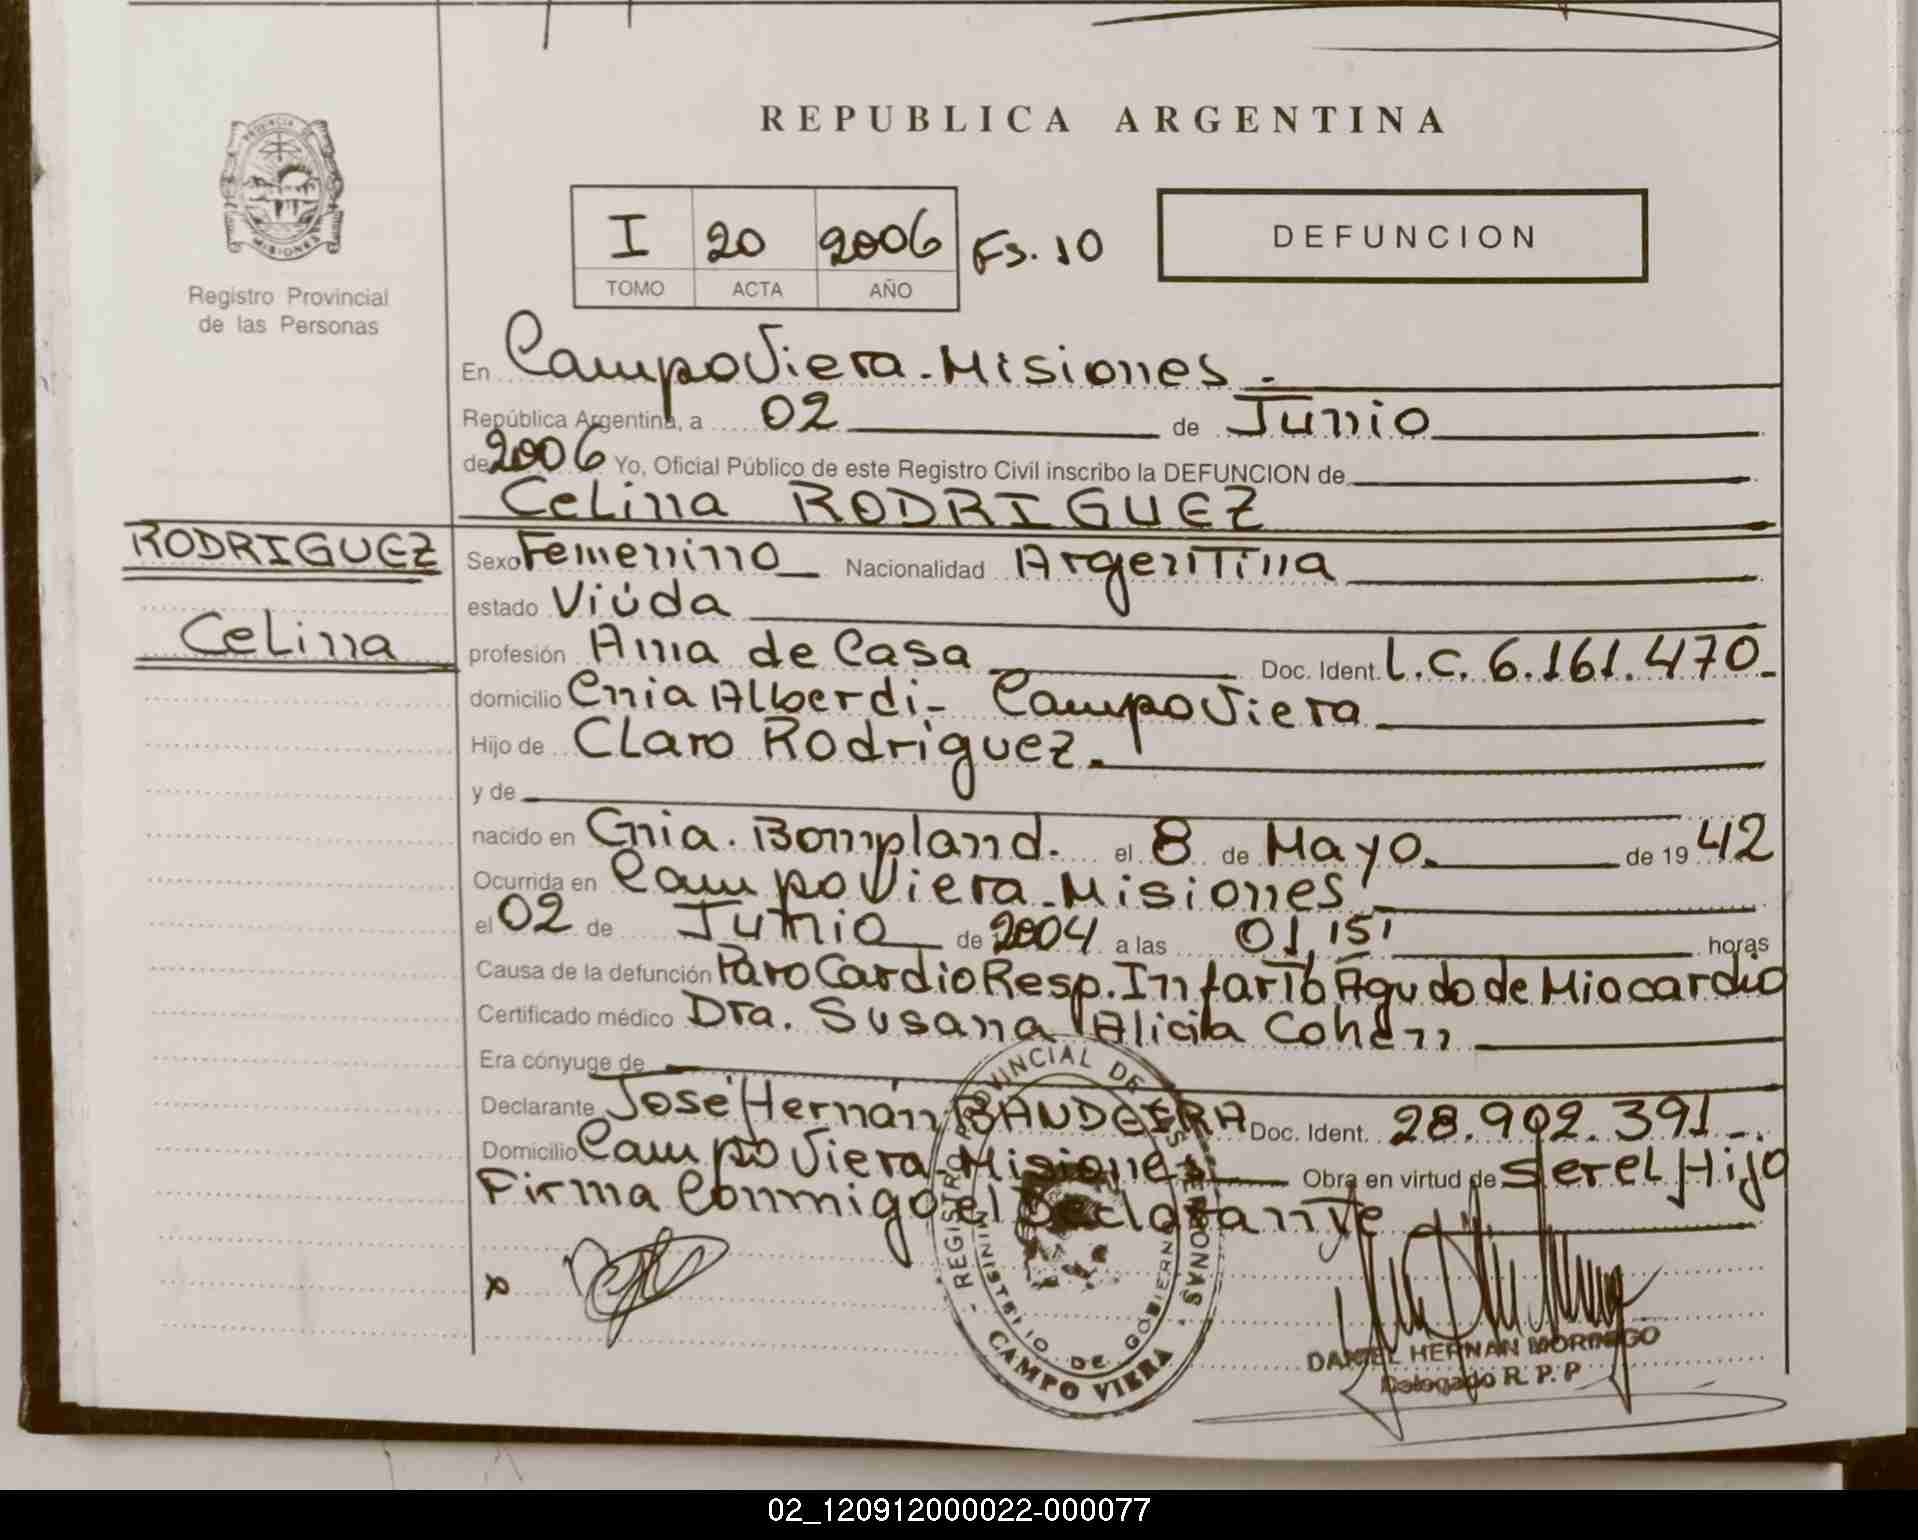 REPUBLICA ARGENTINA
PROVINCIA DE
MISIONES
Registro Provincial
de las Personas
I 20 2006 Fs. 10
TOMO ACTA AÑO
DEFUNCION
En Campo Viera - Misiones.-
República Argentina, a 02 de Junio
de 2006 Yo, Oficial Público de este Registro Civil inscribo la DEFUNCION de
Celina RODRIGUEZ
RODRIGUEZ
Celina
Sexo Femenino Nacionalidad Argentina
estado Viúda
profesión Ama de Casa Doc. Ident. L.C. 6.161.470-
domicilio Cnia Alberdi - Campo Viera
Hijo de Claro Rodriguez.
y de
nacido en Cnia. Bompland. el 8 de Mayo. de 19 42
Ocurrida en Campo Viera - Misiones
el 02 de Junio de 2004 a las 01,15' horas
Causa de la defunción Paro Cardio Resp. Infarto Agudo de Miocardio
Certificado médico Dra. Susana Alicia Cohen
Era cónyuge de
Declarante José Hernán BANDEIRA Doc. Ident. 28.902.391-.
Domicilio Campo Viera - Misiones Obra en virtud de Ser el Hijo
Firma Conmigo el Declarante
x
REGISTRO PROVINCIAL DE LAS PERSONAS
MINISTERIO DE GOBIERNO
CAMPO VIERA
DANIEL HERNAN MORINIGO
Delegado R. P. P
02_120912000022-000077